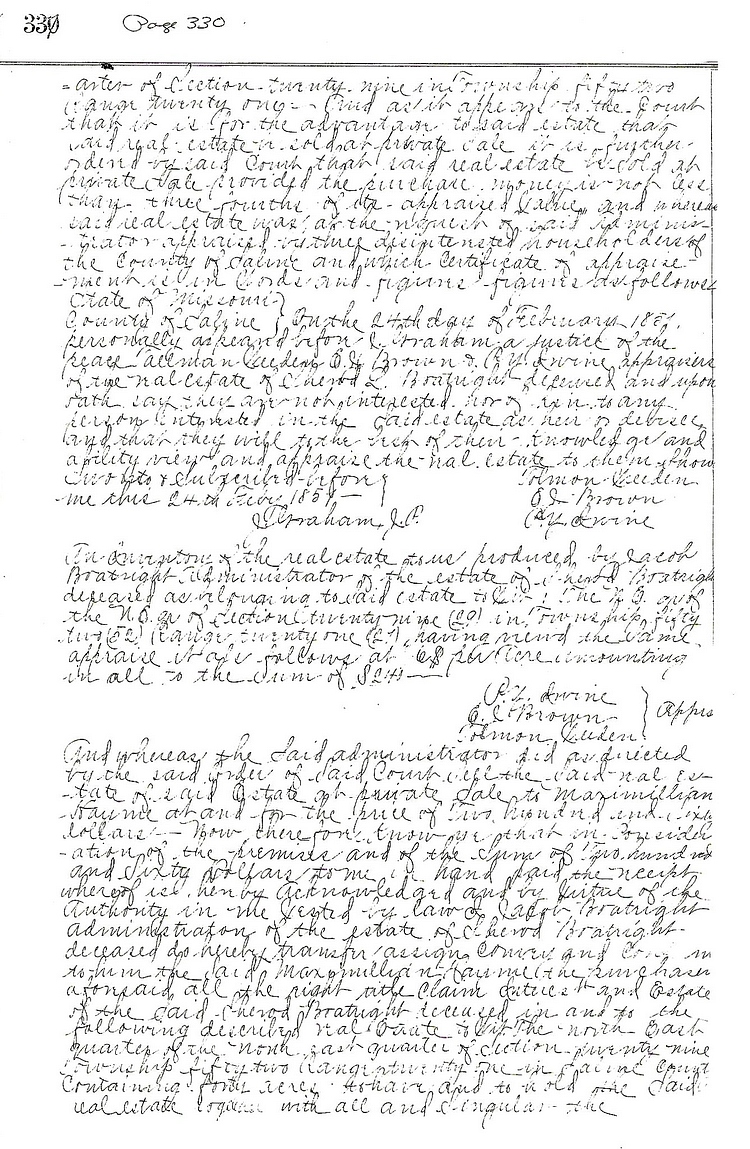 330 Page 330
-arter of Section twenty nine in Township fifty two
Range twenty one - And as it appears to the Court
that it is for the advantage to said estate that
said real estate is sold at private sale it is further
ordered by said Court that said real estate be sold at
private Sale provided the purchase money is not less
than three fourths of its appraised Value and whereas
said real estate was, at the request of said Adminis-
-trator appraised by three disinterested householders of
the County of Saline and which Certificate of appraise-
-ment is in Words and figures figures as follows
State of Missouri }
County of Saline } On the 24th day of February 185
personally appeared before J. Graham a Justice of the
peace E. D. Brown & P. Y. Irvine appraisers
of the real estate of Sherod Boatright deceased and upon
oath say they are not interested nor of kin to any
person interested in the said estate as heir or devisee
and that they will to the best of their knowledge and
ability view and appraise the real estate to them shown
Sworn to & subscribed before }
me this 24th Feby 185 -
E. D. Brown
P. Y. Irvine
Graham J.P.
An Inventory of the real estate to us produced by Jacob
Boatright Administrator of the estate of Sherod Boatrigh
deceased as belonging to said estate to Wit: The N.E. qr of
the N.E. qr of Section twenty nine (29) in Township fifty
two (52) Range twenty one (21), having viewd the same
appraise it as follows at per Acre amounting
in all to the sum of $24
P. Y. Irvine }
E. D. Brown } Apprs
And whereas the said administrator did as directed
by the said order of said Court sell the said real es-
-tate of said Estate at private Sale to Maximillian
Haume at and for the price of Two hundred and sixty
dollars - Now therefore know ye that in Consider
-ation of the premises and of the Sum of Two hundred
and Sixty Dollars to me in hand paid the receipt
whereof is hereby Acknowledged and by Virtue of the
Authority in me Vested by law I Jacob Boatright
administrator of the estate of Sherod Boatright
deceased do hereby transfer assign Convey and
to him the said Maxymillian Haume (the purchaser
aforesaid all the right title Claim Interest and Estate
of the said Sherod Boatright deceased in and to the
following described real Estate to wit The north East
quarter of the north east quarter of Section twenty nine
Township fifty two Range twenty one in Saline Count
Containing forty acres to have and to hold the said
real estate together with all and Singular the